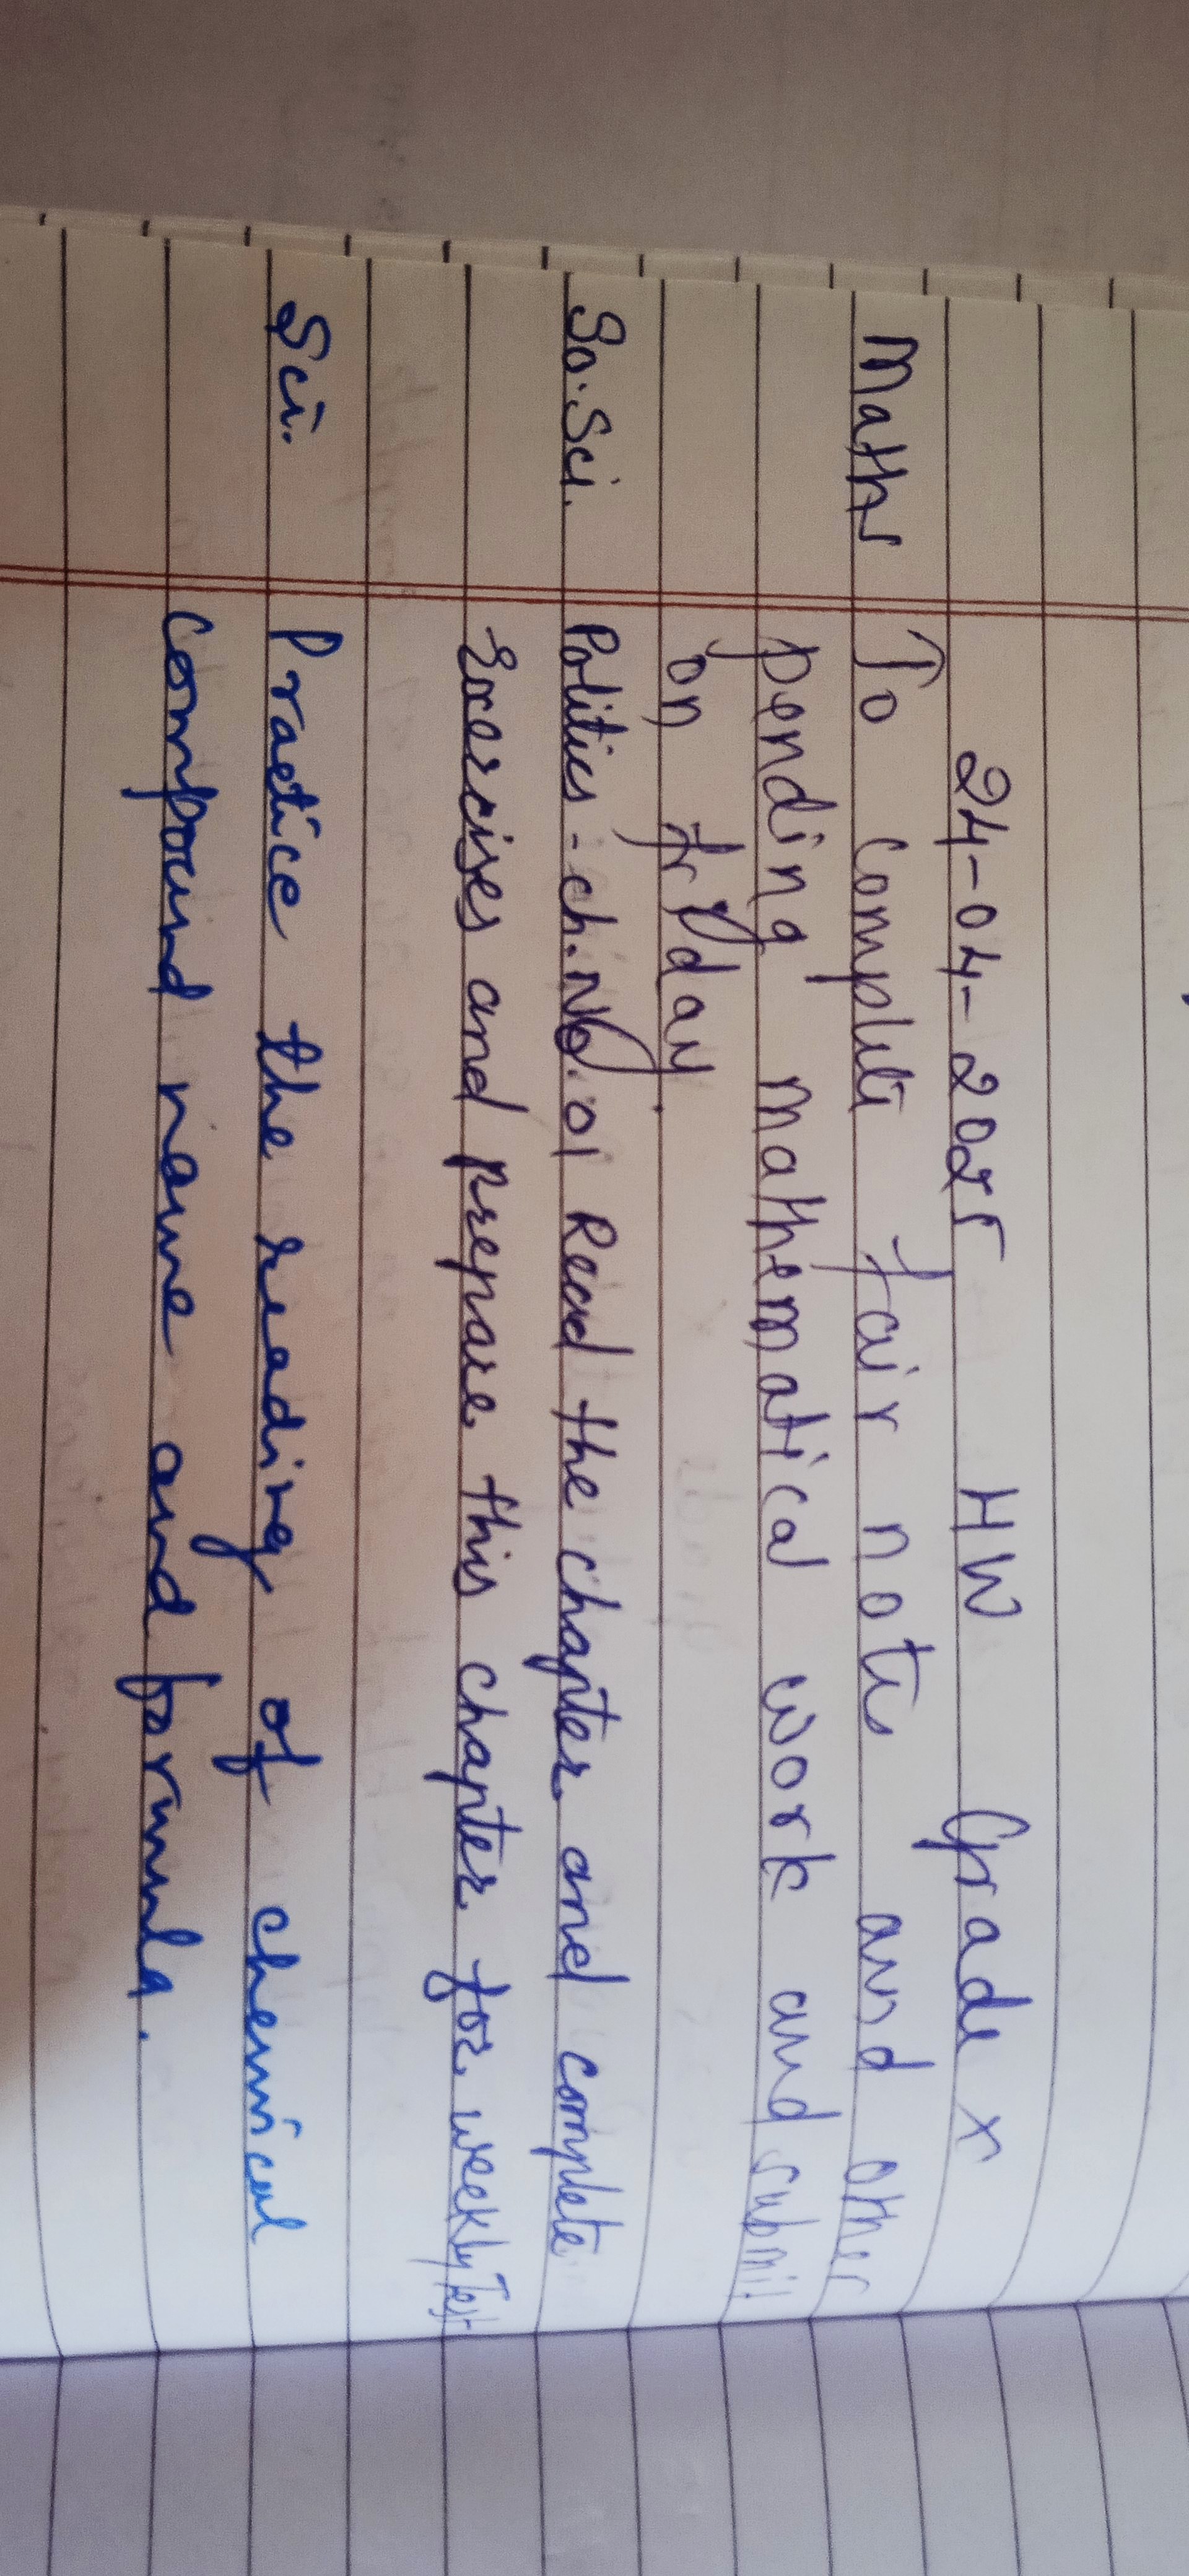 24-04-2025 HW Grade X
Maths To complete fair notes and other
pending mathematical work and submit
on friday.
So.Sci. Politics - ch.No. 01 Read the chapter and complete
Exercises and prepare this chapter for weekly Test
Sci. Practice the reading of chemical
compound name and formula.